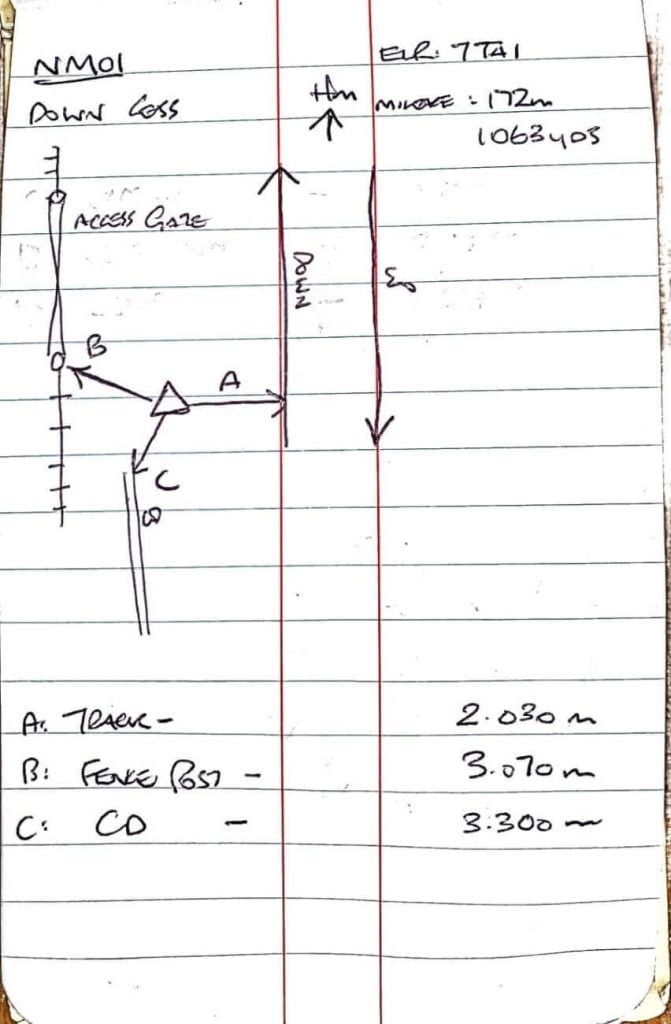 NM01
ELR: 7TA1
DOWN CESS
MILEAGE: 172m
1063yds
ACCESS GATE
DOWN
UP
B
A
C
CD
A: TRACK - 2.030m
B: FENCE POST - 3.070m
C: CD - 3.300m